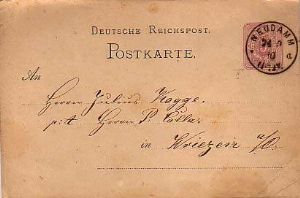 DEUTSCHE REICHSPOST.
POSTKARTE.
NEUDAMM
An
Herrn Julius Kogge.
p. Herrn P.
in Wriezen a/O.